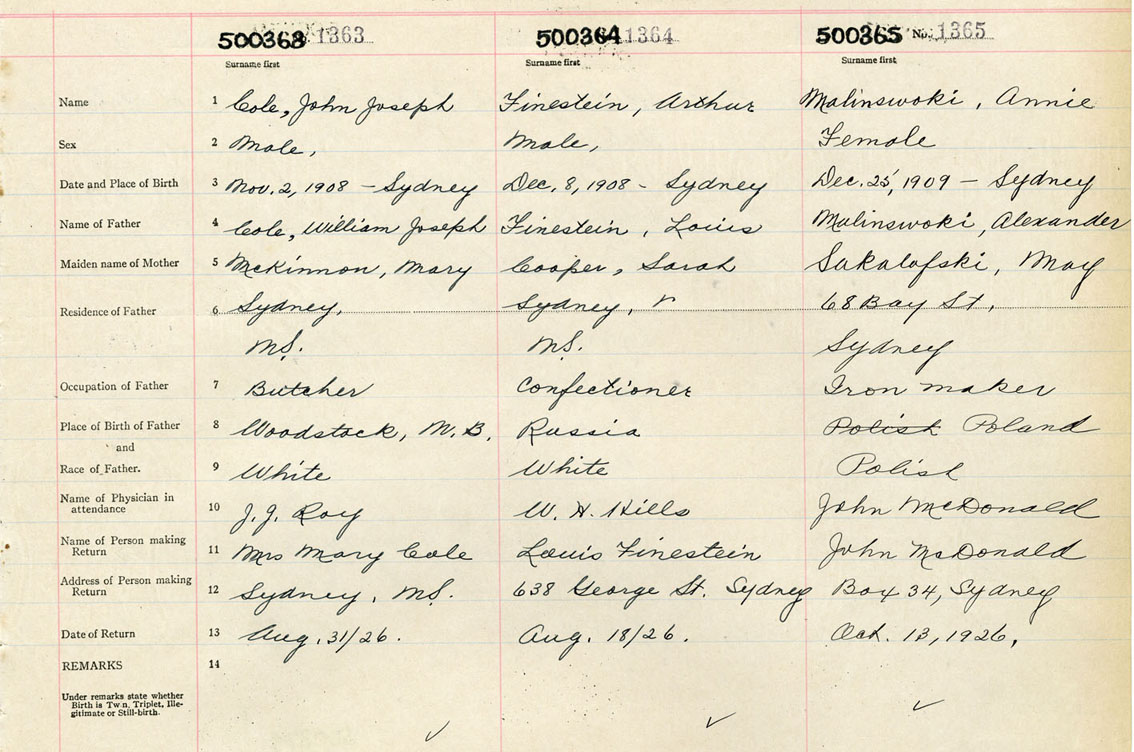 500363 1363 500364 1364 500365 No. 1365
Surname first Surname first Surname first
Name 1 Cole, John Joseph Finestein, Arthur Malinswoki, Annie
Sex 2 Male, Male, Female
Date and Place of Birth 3 Nov. 2, 1908 - Sydney Dec. 8, 1908 - Sydney Dec. 25, 1909 - Sydney
Name of Father 4 Cole, William Joseph Finestein, Louis Malinswoki, Alexander
Maiden name of Mother 5 McKinnon, Mary Cooper, Sarah Sakalofski, May
Residence of Father 6 Sydney, Sydney, 68 Bay St,
Sydney
Occupation of Father 7 Butcher Confectioner Iron maker
Place of Birth of Father 8 Woodstock, N.B. Russia Polish Poland
and
Race of Father. 9 White White Polish
Name of Physician in
attendance 10 J. J. Roy W. H. Hills John McDonald
Name of Person making
Return 11 Mrs Mary Cole Louis Finestein John McDonald
Address of Person making
Return 12 Sydney, N.S. 638 George St. Sydney Box 34, Sydney
Date of Return 13 Aug. 31/26. Aug. 18/26. Oct. 13, 1926,
REMARKS 14
Under remarks state whether
Birth is Twin, Triplet, Ille-
gitimate or Still-birth.